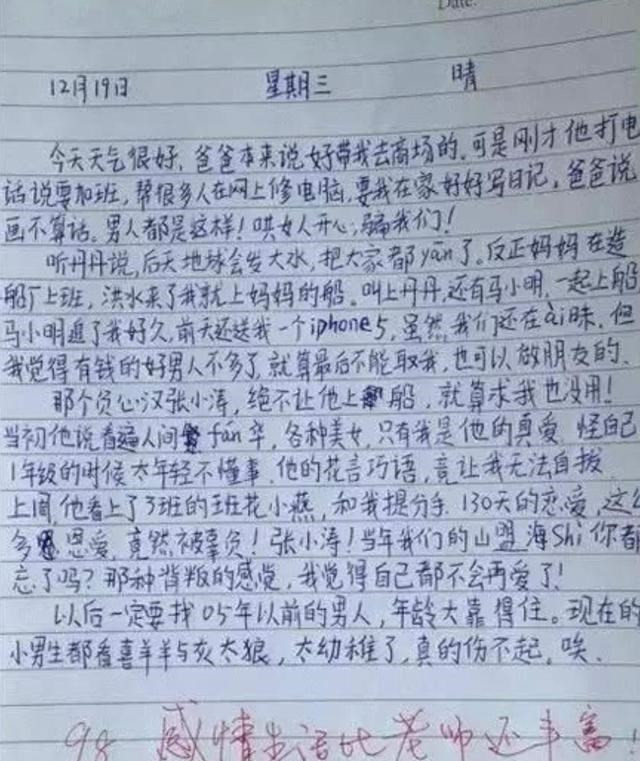 Date:
12月19日 星期三 晴
今天天气很好,爸爸本来说好带我去商场的,可是刚才他打电
话说要加班,帮很多人在网上修电脑,要我在家好好写日记,爸爸说
画不算话。男人都是这样!哄女人开心,骗我们!
听丹丹说,后天地球会发大水,把大家都yān了。反正妈妈在造
船厂上班,洪水来了我就上妈妈的船。叫上丹丹,还有马小明,一起上船
马小明追了我好久,前天还送我一个iphone5,虽然我们还在ài昧,但
我觉得有钱的好男人不多了,就算最后不能取我,也可以做朋友的、
那个负心汉张小涛,绝不让他上船,就算求我也没用!
当初他说看遍人间fán华,各种美女,只有我是他的真爱,怪自己
1年级的时候太年轻不懂事,他的花言巧语,竟让我无法自拔
上周,他看上了3班的班花小燕,和我提分手,130天的恋爱,这
多恩爱,竟然被辜负!张小涛!当年我们的山盟海Shi你都
忘了吗?那种背叛的感觉,我觉得自己都不会再爱了!
以后一定要找05年以前的男人,年龄大靠得住。现在的
小男生都看喜羊羊与灰太狼,太幼稚了,真的伤不起。唉、
98 感情生活比老师还丰富!